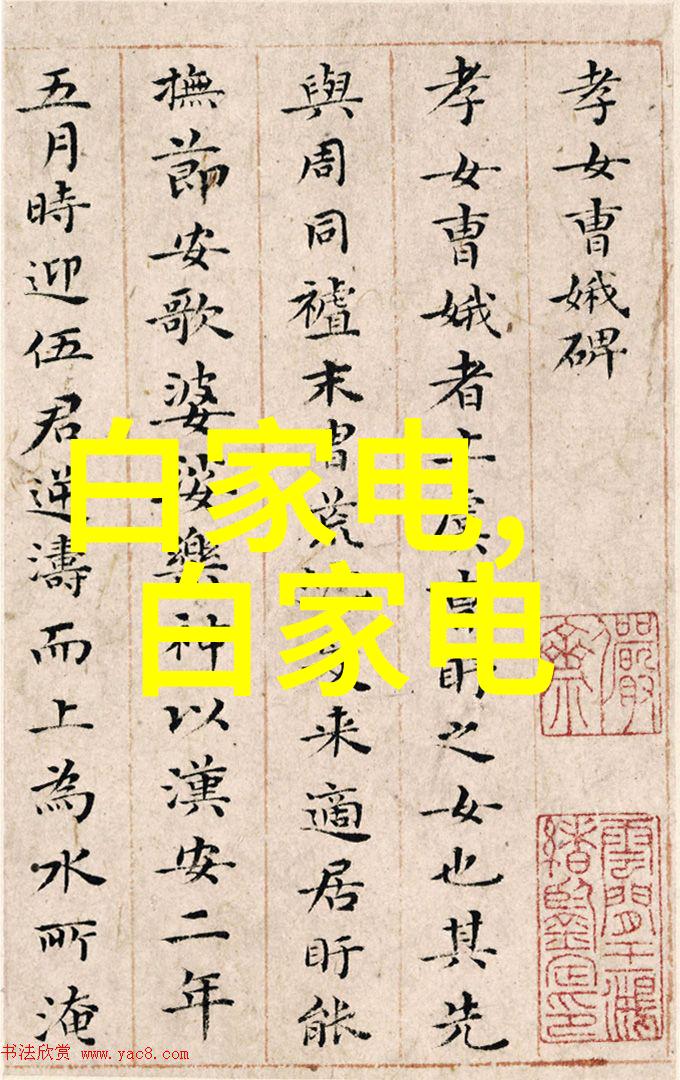 孝女曹娥碑
孝女曹娥者上虞曹盱之女也其先
與周同末胄荒來適居盱能
撫節安歌婆娑樂神以漢安二年
五月時迎伍君逆濤而上為水所淹
白家电,
白家电
儼齋
雲間王鴻緒鑒定印
书法欣赏 www.yac8.com